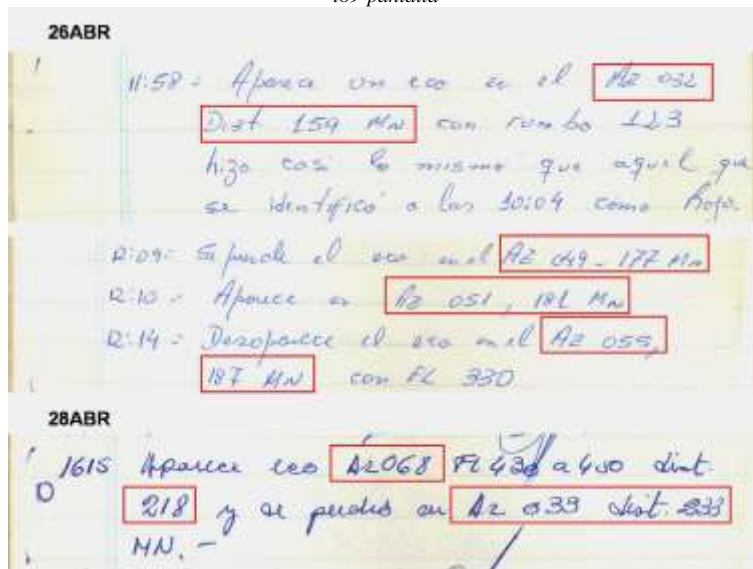 los pantalla
26ABR
11:58 = Aparece un eco en el Az 032
Dist 159 MN con rumbo 123
hizo casi lo mismo que aquel que
se identificó a las 10:04 como
12:09 = Se pierde el eco en el AZ 049 - 177 MN
12:10 - Aparece en Az 051, 181 MN
12:14 = Desaparece el eco en el AZ 055,
187 MN con FL 330
28ABR
1615 Aparece eco AZ068 FL 430 a 400 dist.
218 y se perdió en Az 039 dist. 233
MN. -